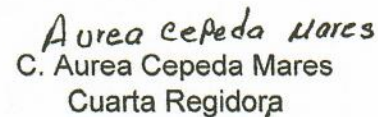 Aurea Cepeda Mares
C. Aurea Cepeda Mares
Cuarta Regidora